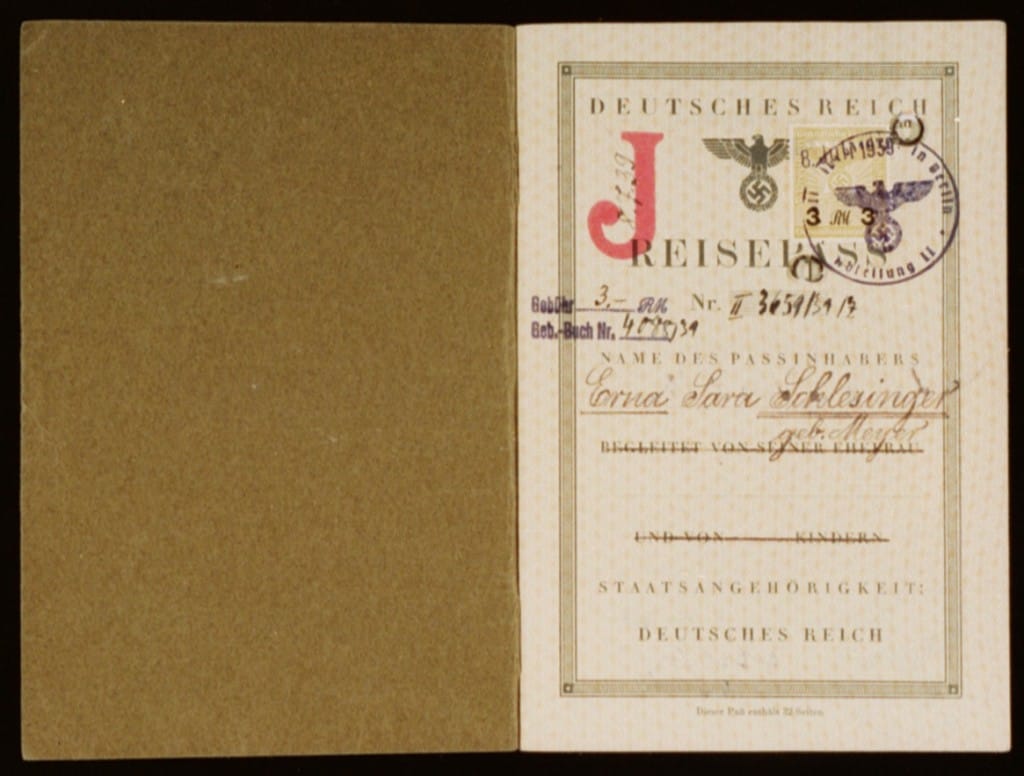 DEUTSCHES REICH
J
8.7.39
8. 1939
in Berlin
Abteilung II
3 RM 3
REISEPASS
Gebühr 3.- RM
Nr. II 3659/39/7
Geb.-Buch Nr. /39
NAME DES PASSINHABERS
Erna Sara Schlesinger
geb. Meyer
BEGLEITET VON SEINER EHEFRAU
UND VON KINDERN
STAATSANGEHÖRIGKEIT:
DEUTSCHES REICH
Dieser Paß enthält 32 Seiten